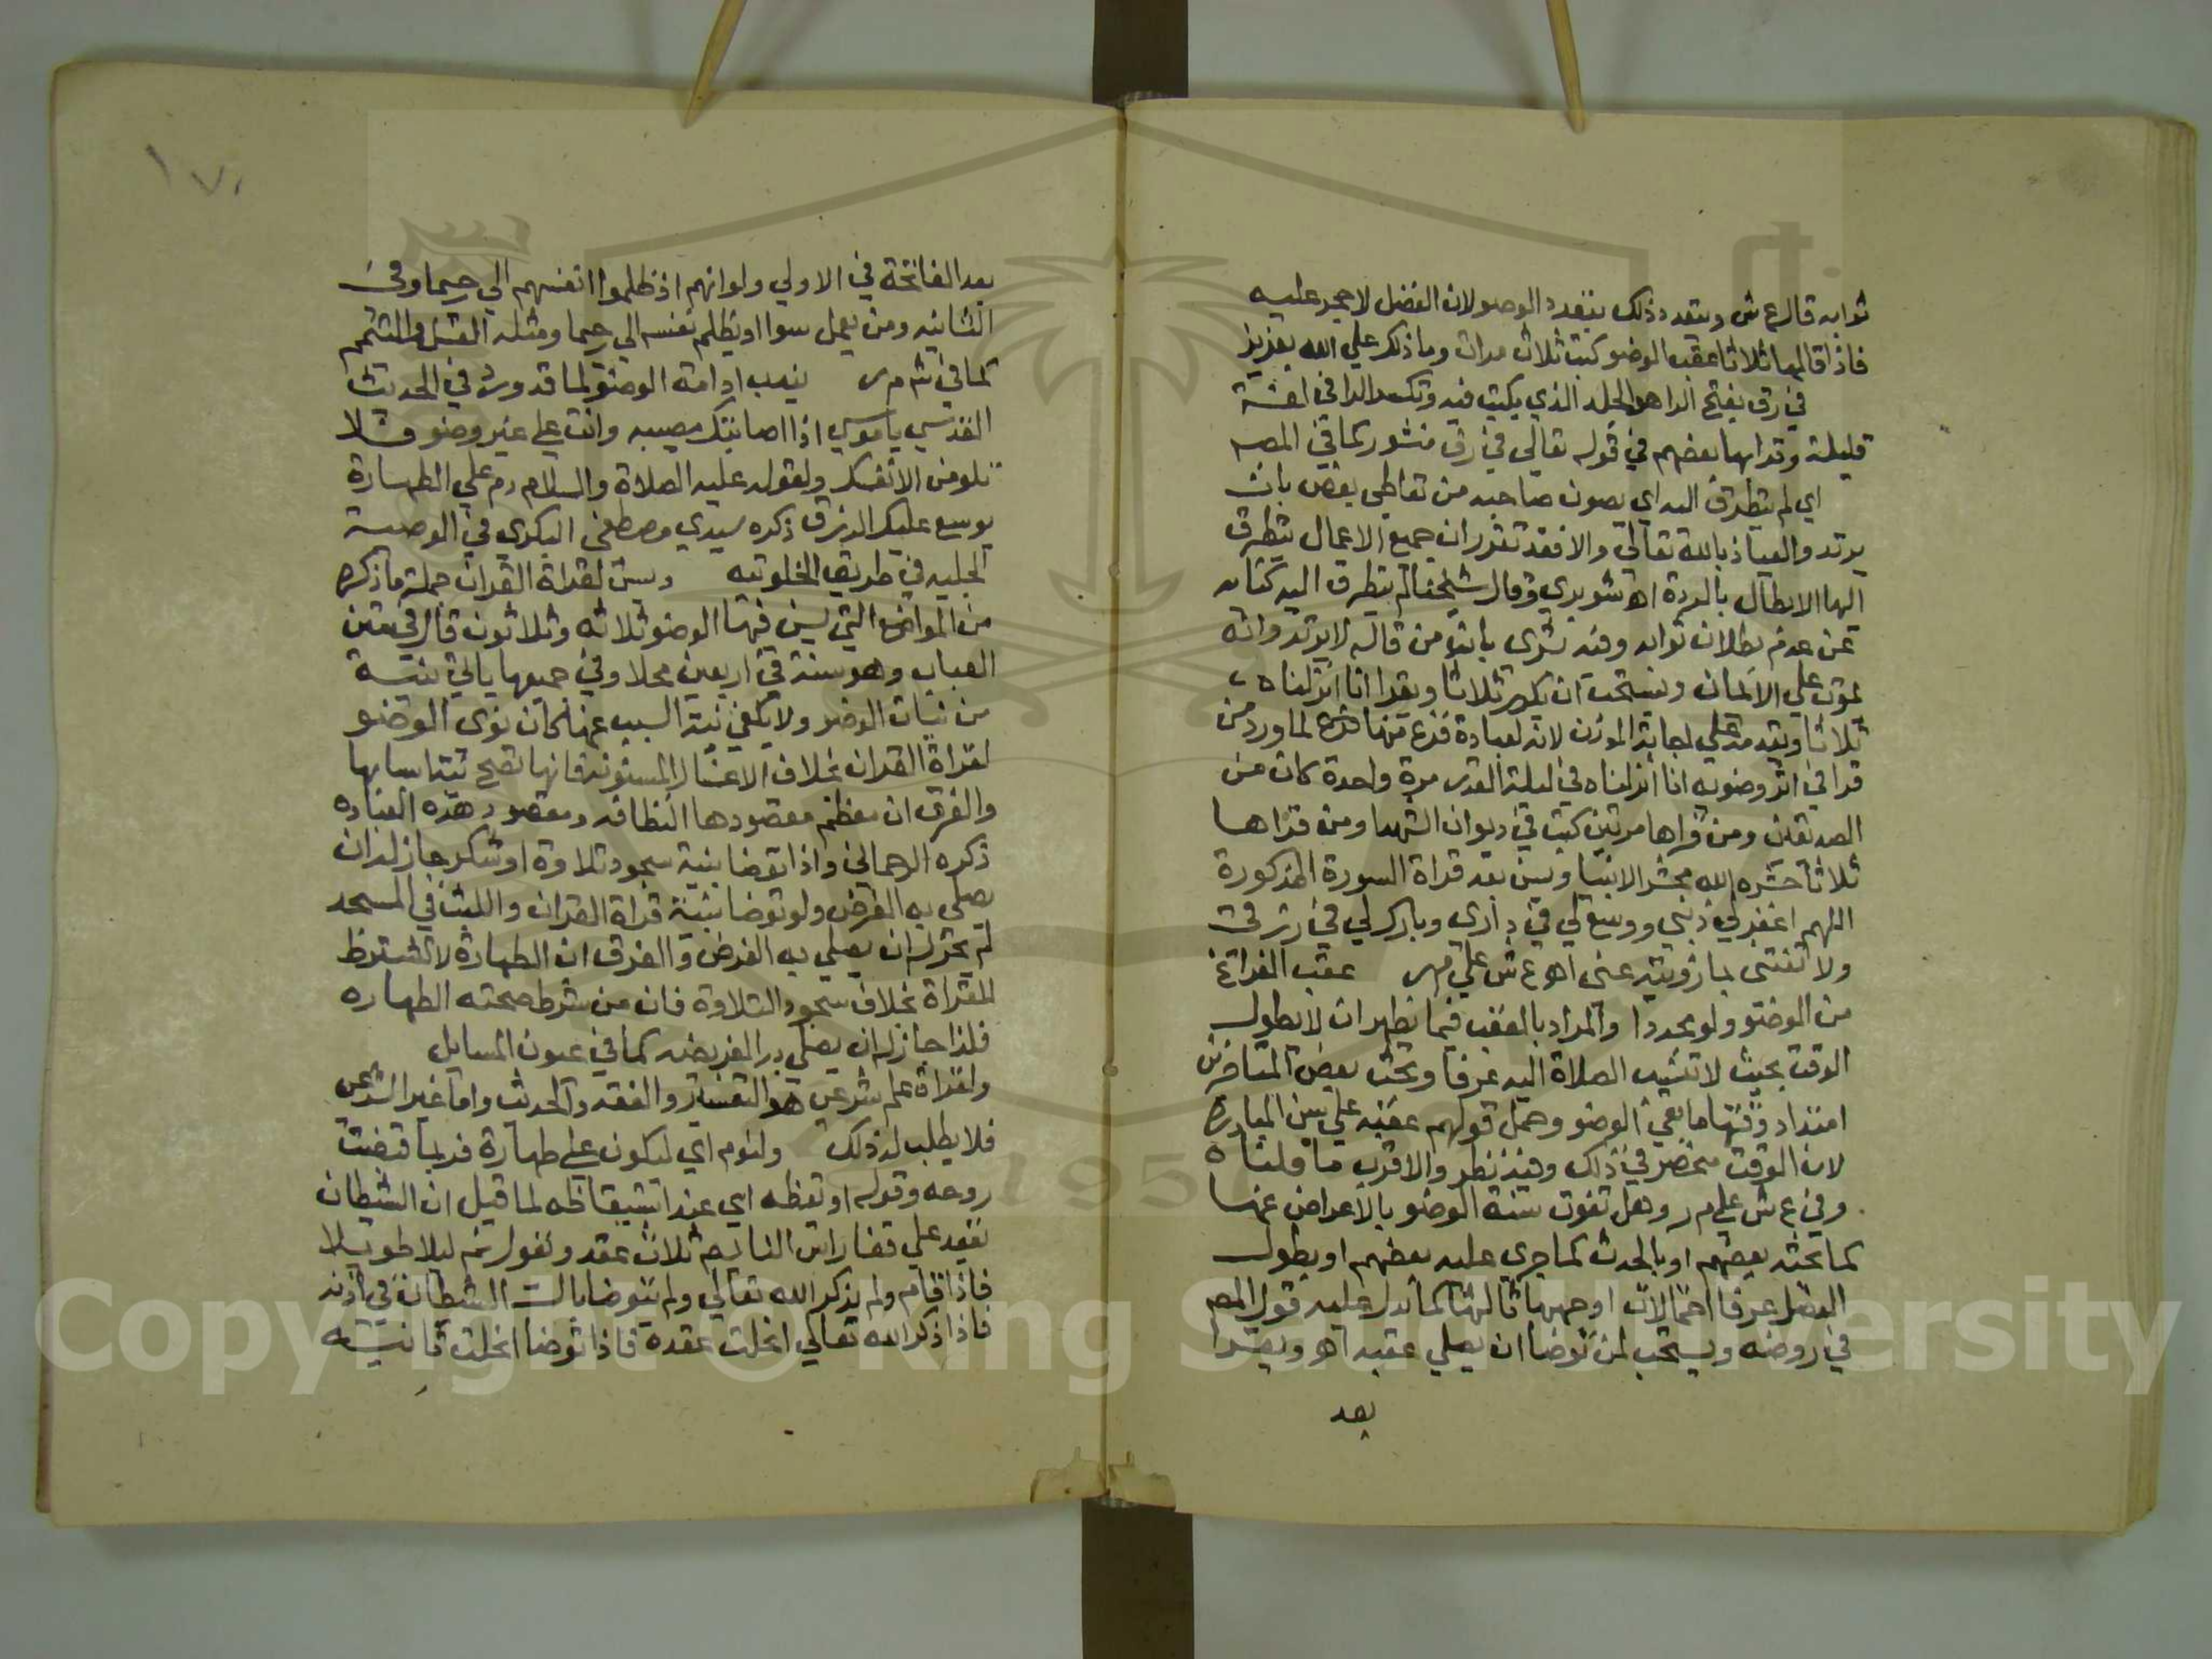 ثوابه قال ع ش ويتعدد ذلك بتعدد الوضو لان الفضل لا حجر عليه
فاذا قالها ثلاثا عقب الوضو كتب ثلاث مرات وما ذلك علي الله بعزيز
في رق بفتح الرا هو الجلد الذي يكتب فيه وتكسر الرا في لغة
قليلة وقرا بها بعضهم في قوله تعالي في رق منشور كما في المص
اي لم يتطرق اليه اي يصون صاحبه من تعاطي بغض بان
يرتد والعياذ بالله تعالي والا فقد تقرر ان جميع الاعمال يتطرق
اليها الابطال بالردة اهـ شوبري وقال شيخنا لم يتطرق اليه كناية
عن عدم بطلان ثوابه وفيه بشرى بان من قاله لا يرتد وانه
يموت علي الايمان ويستحب ان يكرر ثلاثا ويقرا انا انزلناه
ثلاثا ويقدمه علي اجابة الموذن لانه لعبادة فرغ منها فرع لما ورد من
قرا في اثر وضويه انا انزلناه في ليلة القدر مرة واحدة كان من
الصديقين ومن قراها مرتين كتب في ديوان الشهدا ومن قراها
ثلاثا حشره الله محشر الانبيا ويسن بعد قراة السورة المذكورة
اللهم اغفر لي ذنبي ووسع لي في داري وبارك لي في رزقي
ولا تفتني بما زويته عني اهـ ع ش علي م ر عقب الفراغ
من الوضو ولو مجددا والمراد بالعقب فيما يظهر ان لا يطول
الوقت بحيث لا تنسب الصلاة اليه عرفا وبحث بعض المتاخرين
امتداد وقتها ما بقي الوضو وحمل قولهم عقبه علي سن المبادرة
لان الوقت منحصر في ذلك وفيه نظر والاقرب ما قلناه
وفي ع ش علي م ر وهل تفوت سنة الوضو بالاعراض عنها
كما بحثه بعضهم او بالحدث كما جري عليه بعضهم او بطول
الفصل عرفا احتمالات اوجهها ثالثها كما يدل عليه قول المص
في روضه ويستحب لمن توضا ان يصلي عقبه اهـ ويقرا
بعد
١٧١
بعد الفاتحة في الاولي ولو انهم اذ ظلموا انفسهم الي رحيما وفي
الثانيه ومن يعمل سوا او يظلم نفسه الي رحيما ومثله الغسل والتيمم
كما في ش م ر يندب ادامة الوضو لما قد ورد في الحديث
القدسي يا موسي اذا اصابتك مصيبه وانت علي غير وضو فلا
تلومن الا نفسك ولقوله عليه الصلاة والسلام دم علي الطهارة
يوسع عليك الرزق ذكره سيدي مصطفى البكري في الوصية
الجليه في طريق الخلوتيه ويسن لقراة القران جملة ما ذكره
من المواضع التي يسن فيها الوضو ثلاثه وثلاثون قال في متن
العباب وهو سنة في اربعين محلا وفي جميعها ياتي بنية
من نيات الوضو ولا يكفي نية السبب عنها كان نوى الوضو
لقراة القران بخلاف الاغسال المسنونة فانها تصح بنية اسبابها
والفرق ان معظم مقصودها النظافه ومقصود هذه العباده
ذكره الرحماني واذا توضا بنية سجود تلاوة او شكر جاز له ان
يصلي به الفرض ولو توضا بنية قراة القران واللبث في المسجد
لم يجز له ان يصلي به الفرض والفرق ان الطهارة لا تشترط
للقراة بخلاف سجود التلاوة فان من شرط صحته الطهاره
فلذا جاز له ان يصلي به الفريضه كما في عيون المسايل
ولقراة علم شرعي هو التفسير والفقه والحديث واما غير الشرعي
فلا يطلب له ذلك ولنوم اي ليكون علي طهارة فربما قبضت
روحه وقوله او يقظه اي عند استيقاظه لما قيل ان الشيطان
يعقد علي قفا راس النايم ثلاث عقد ويقول نم ليلا طويلا
فاذا قام ولم يذكر الله تعالي ولم يتوضا بال الشيطان في اذنه
فاذا ذكر الله تعالي انحلت عقدة فاذا توضا انحلت ثانيته